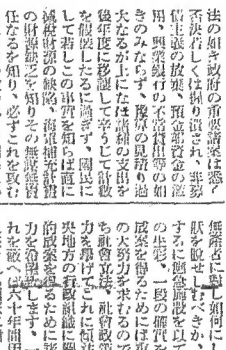 法の如き政府の重要諸案は悉く
否決若しくは握り潰され、非募
債主義の放棄、預金部資金の濫
用、興業銀行の不當貸出等の如
きのみならず、豫算の見積り過
大なるが上になほ諸種の支出を
後年度に移讓して辛うじて計數
を假裝したるに過ぎず、國民に
して若しこの事實を知らば直に
減稅財源の缺乏、海軍補充計畫
の財源缺乏を知りその無謀無責
任なるを知り、必ずこれを責む
無產者に對し如何にし
狀を脫せしむべきか、
するに應急施設をして
の生彩、一段の確實を
成案を得るためには更
の大努力を求むるので
ち社會立法、社會政策
力を擧げてこれに傾注
央地方の行政組織に關
的成案を得るために諸
力を希望します。一
六十年間